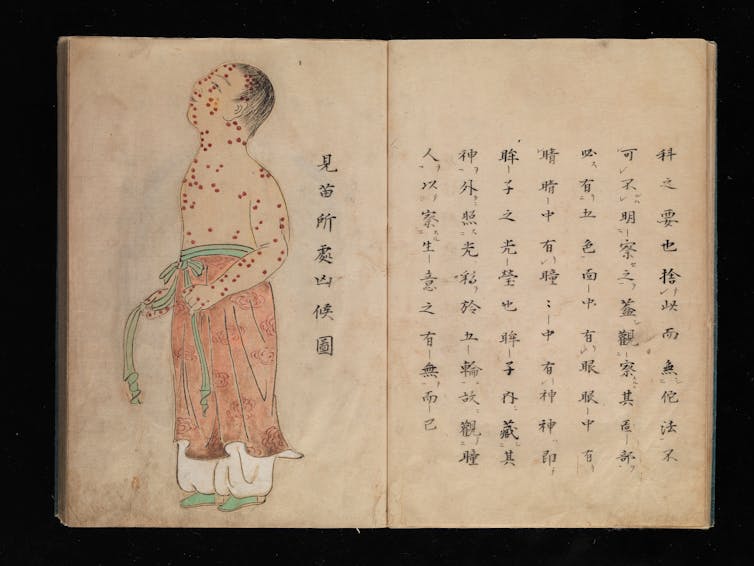 科之要也捨此而無佗法不
可不明察之蓋觀察其部
必有五色面中有眼眼中有
睛睛中有瞳〻中有神神即
眸子之光瑩也眸子內藏其
神外照光彩於五輪故觀瞳
人以察生意之有無而已
見苗所處凶候圖